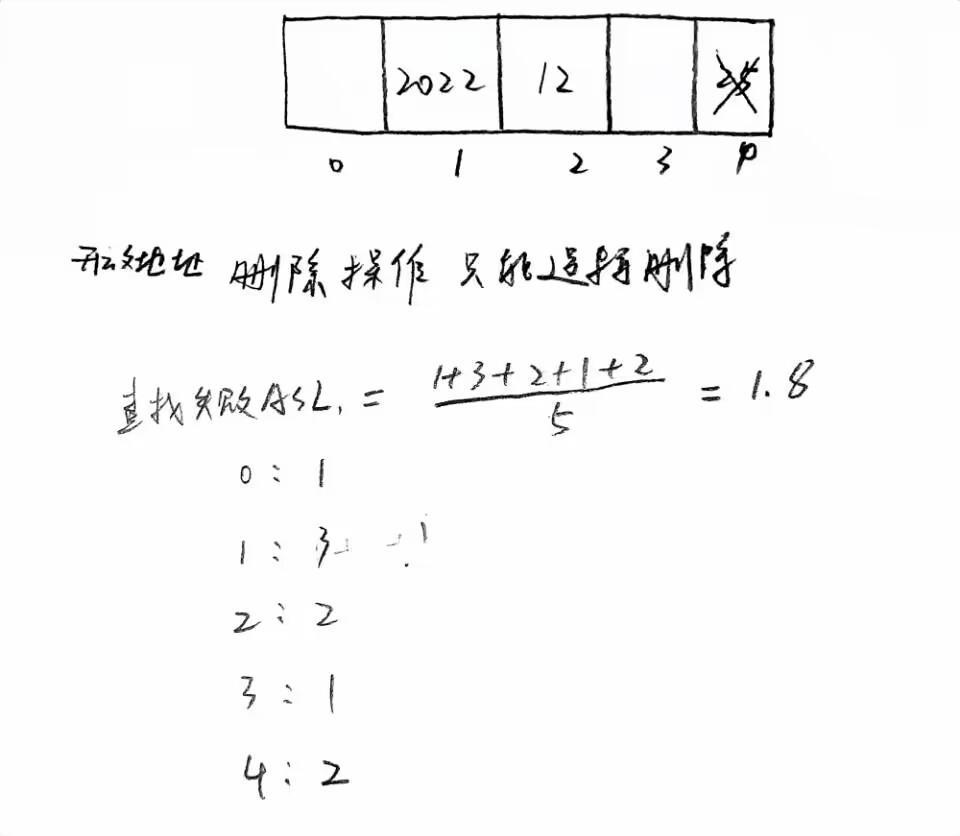 2022 12 25
0 1 2 3 4
开放地址 删除操作 只能逻辑删除
查找失败ASL, = 1+3+2+1+2 / 5 = 1.8
0: 1
1: 3
2: 2
3: 1
4: 2